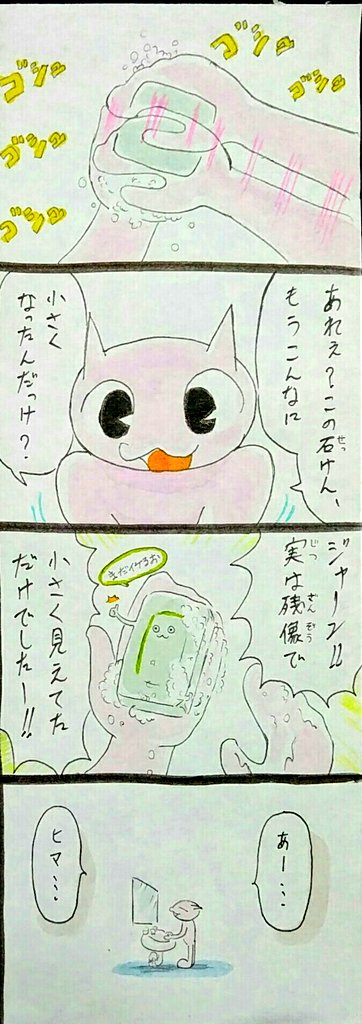 ゴシュ
ゴシュ
ゴシュ
ゴシュ
ゴシュ
あれぇ?この石けん、
もうこんなに
小さく
なったんだっけ?
ジャーン!!
実は残像で
小さく見えてた
だけでしたー!!
まだイケるお
あー…
ヒマ…